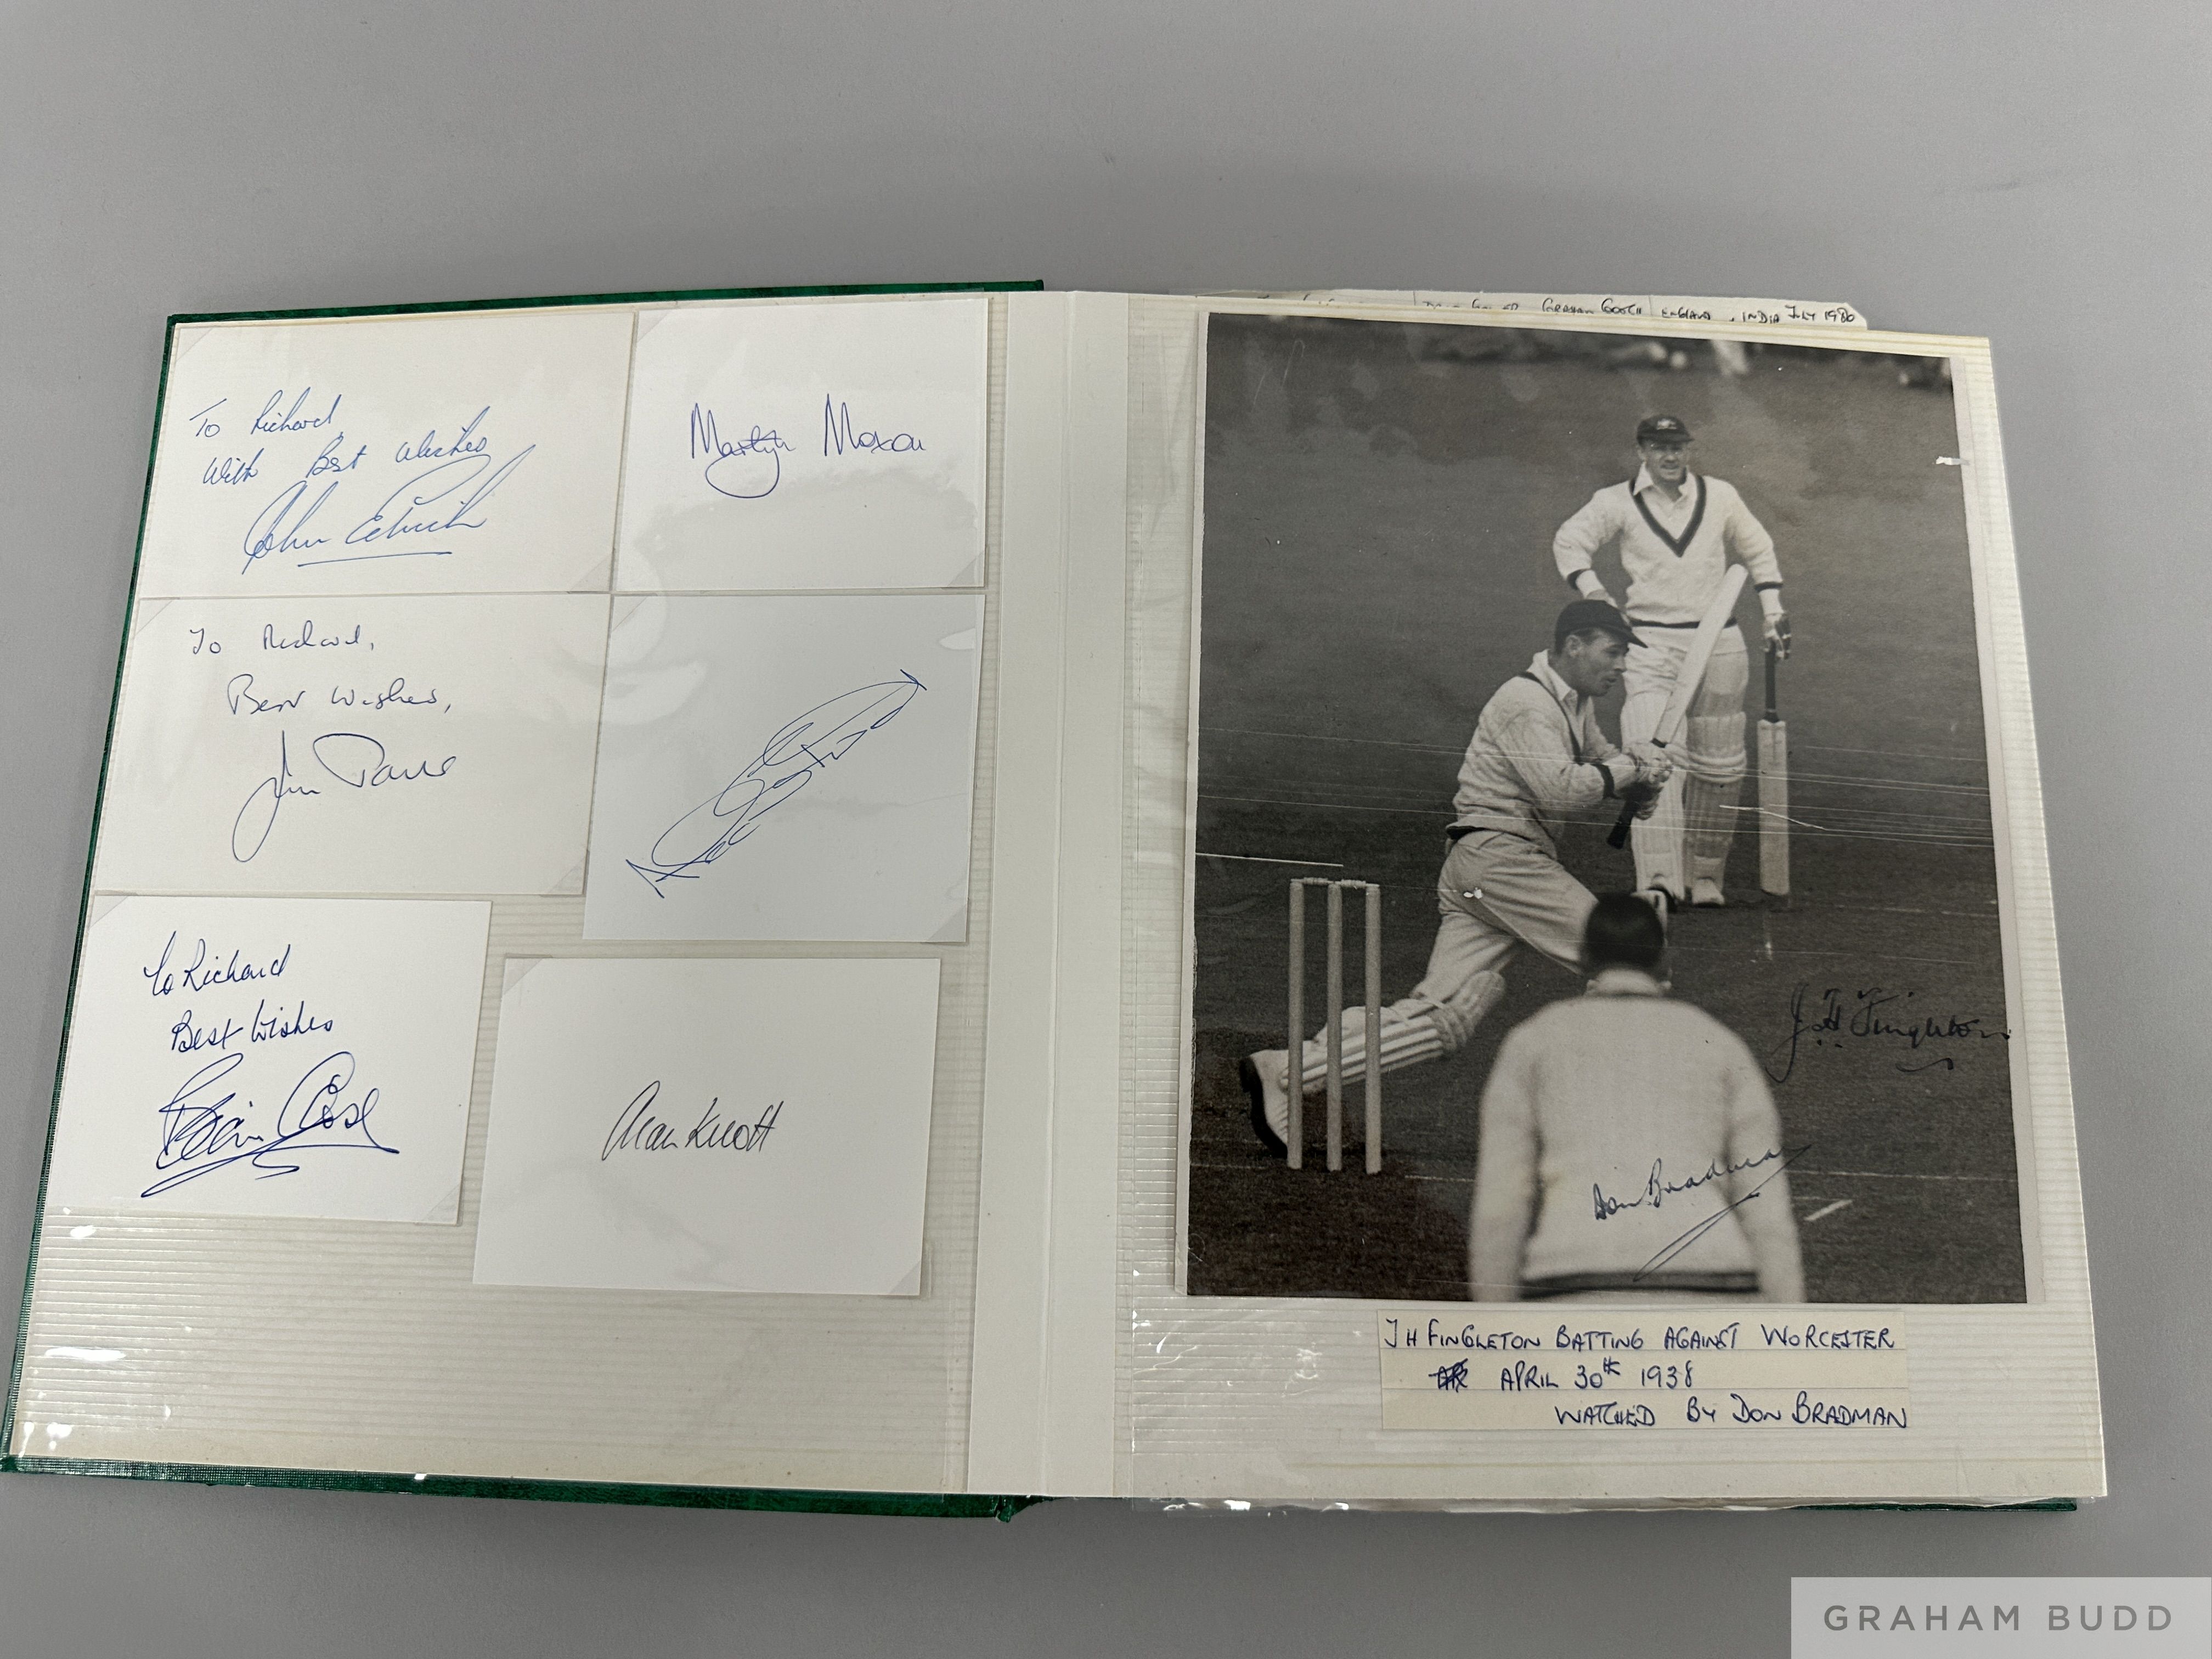 To Richard,
With Best Wishes
John Edrich
Martyn Moxon
To Richard,
Best Wishes,
Jim Parks
To Richard
Best Wishes
Brian Close
Alan Knott
GRAHAM GOOCH ENGLAND . INDIA JULY 1986
J. H. Fingleton
Don Bradman
J H FINGLETON BATTING AGAINST WORCESTER
APRIL 30th 1938
WATCHED BY DON BRADMAN
GRAHAM BUDD